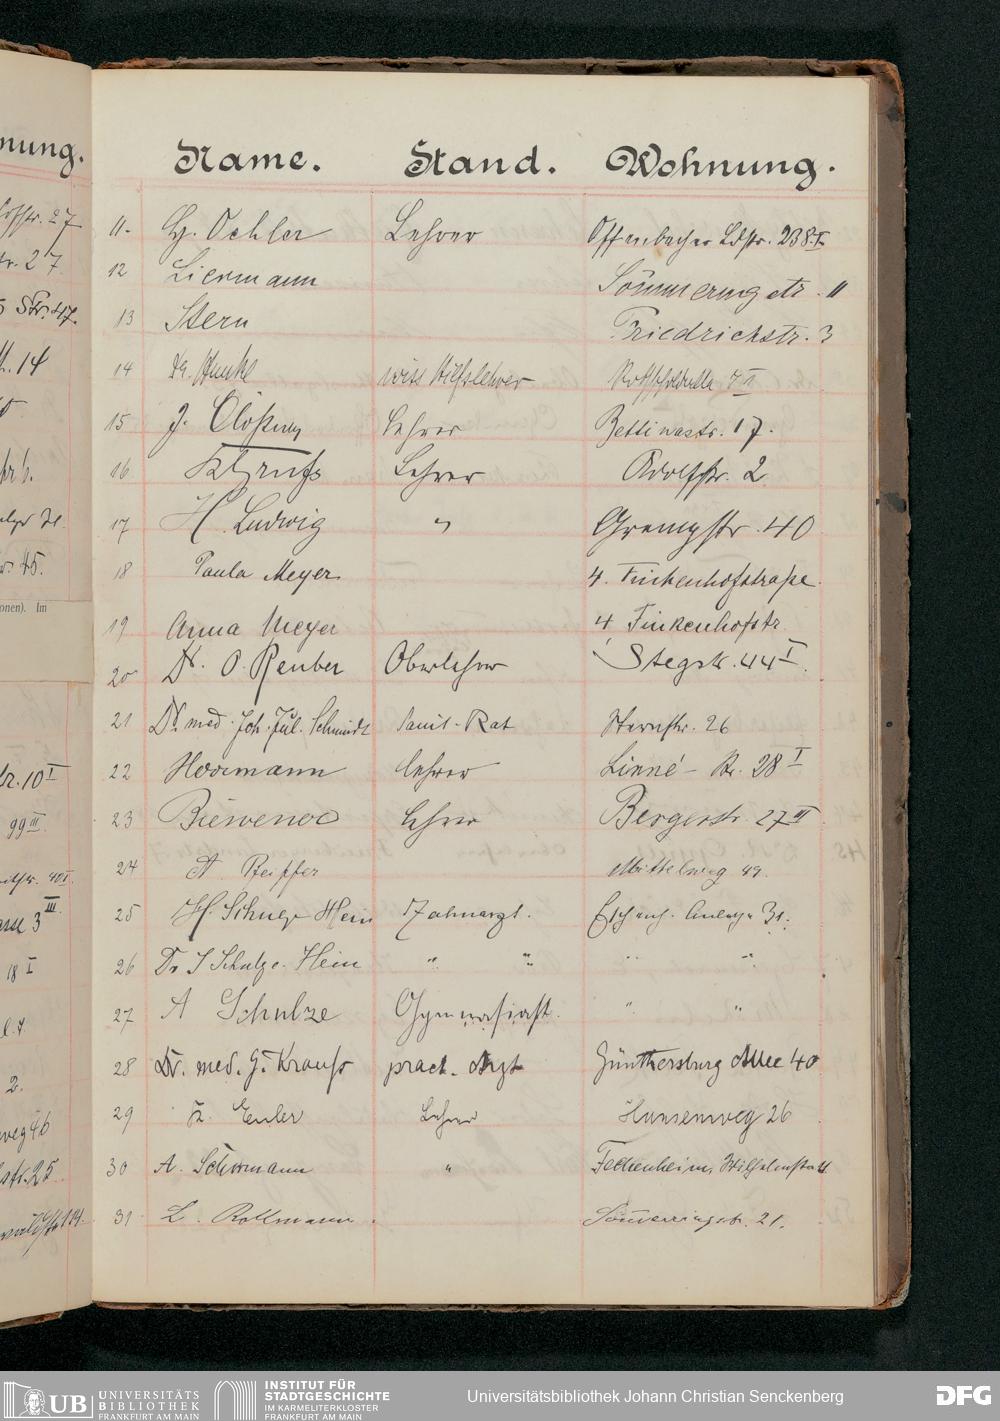 nung.
27
27
Str. 47.
14
45.
onen). Im
10 I
99 III.
3 III.
18 I
2.
46
25
114.
Name. Stand. Wohnung.
11. Oehler Lehrer Offenbacher Ldstr. 238 I.
12 Liermann Sömmeringstr. 11
13 Stern Friedrichstr. 3
14 Dr. wiss Hilfslehrer 7 II
15 J. Lehrer Bettinastr. 17.
16 Lehrer Adolfstr. 2
17 H. Ludwig " Grempstr. 40
18 Paula Meyer 4. Finkenhofstraße.
19 Anna Meyer 4 Finkenhofstr.
20 Dr. O. Reuber Oberlehrer Stegstr. 44 I.
21 Dr. med. Joh. Jul. Schmidt Sanit-Rat Sternstr. 26
22 Hoormann Lehrer Linné-Str. 28 I
23 Lehrer Bergerstr. 27 II
24 A Pfeiffer Mittelweg 49.
25 H. Schulze Hein Zahnarzt. Eschenh. Anlage 31.
26 Dr J Schulze-Hein " " " "
27 A Schulze Gymnasiast. " "
28 Dr. med. G. Krauß pract. Arzt Günthersburg Allee 40
29 Euler Lehrer Hansenweg 26
30 A. Schürmann " Fechenheim, Wilhelmstr 4
31 L. Rollmann. Sömmeringstr. 21.
UB UNIVERSITÄTS
BIBLIOTHEK
FRANKFURT AM MAIN
INSTITUT FÜR
STADTGESCHICHTE
IM KARMELITERKLOSTER
FRANKFURT AM MAIN
Universitätsbibliothek Johann Christian Senckenberg
DFG